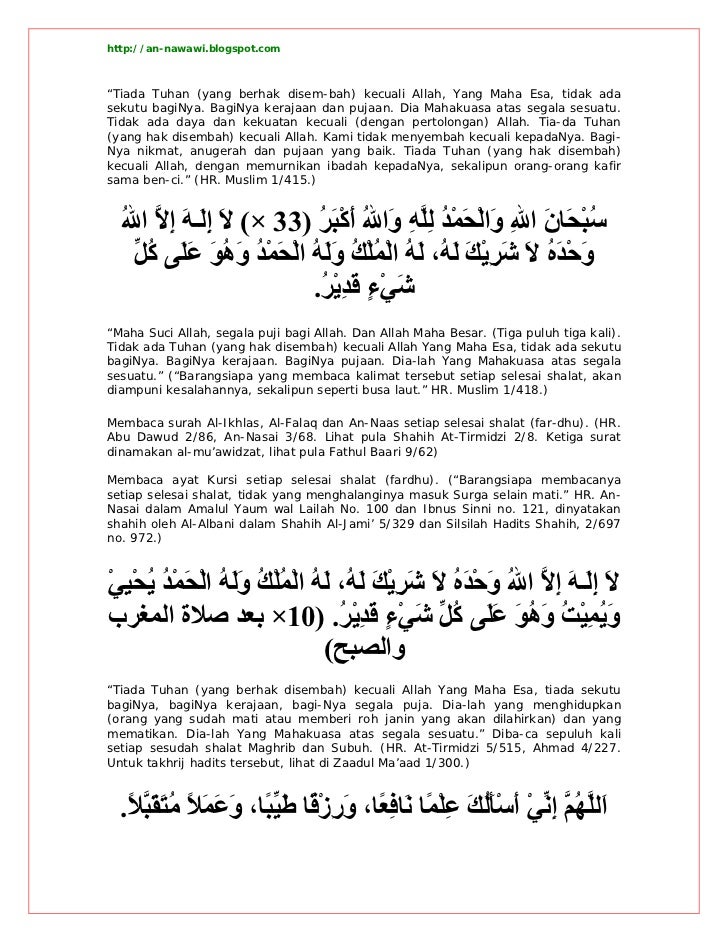 http://an-nawawi.blogspot.com
“Tiada Tuhan (yang berhak disem-bah) kecuali Allah, Yang Maha Esa, tidak ada
sekutu bagiNya. BagiNya kerajaan dan pujaan. Dia Mahakuasa atas segala sesuatu.
Tidak ada daya dan kekuatan kecuali (dengan pertolongan) Allah. Tia-da Tuhan
(yang hak disembah) kecuali Allah. Kami tidak menyembah kecuali kepadaNya. Bagi-
Nya nikmat, anugerah dan pujaan yang baik. Tiada Tuhan (yang hak disembah)
kecuali Allah, dengan memurnikan ibadah kepadaNya, sekalipun orang-orang kafir
sama ben-ci.” (HR. Muslim 1/415.)
سُبْحَانَ اللهِ وَالْحَمْدُ لِلَّهِ وَاللهُ أَكْبَرُ (33 ×) لاَ إِلَـهَ إِلاَّ اللهُ
وَحْدَهُ لاَ شَرِيْكَ لَهُ، لَهُ الْمُلْكُ وَلَهُ الْحَمْدُ وَهُوَ عَلَى كُلِّ
شَيْءٍ قَدِيْرُ.
“Maha Suci Allah, segala puji bagi Allah. Dan Allah Maha Besar. (Tiga puluh tiga kali).
Tidak ada Tuhan (yang hak disembah) kecuali Allah Yang Maha Esa, tidak ada sekutu
bagiNya. BagiNya kerajaan. BagiNya pujaan. Dia-lah Yang Mahakuasa atas segala
sesuatu.” (“Barangsiapa yang membaca kalimat tersebut setiap selesai shalat, akan
diampuni kesalahannya, sekalipun seperti busa laut.” HR. Muslim 1/418.)
Membaca surah Al-Ikhlas, Al-Falaq dan An-Naas setiap selesai shalat (far-dhu). (HR.
Abu Dawud 2/86, An-Nasai 3/68. Lihat pula Shahih At-Tirmidzi 2/8. Ketiga surat
dinamakan al-mu’awidzat, lihat pula Fathul Baari 9/62)
Membaca ayat Kursi setiap selesai shalat (fardhu). (“Barangsiapa membacanya
setiap selesai shalat, tidak yang menghalanginya masuk Surga selain mati.” HR. An-
Nasai dalam Amalul Yaum wal Lailah No. 100 dan Ibnus Sinni no. 121, dinyatakan
shahih oleh Al-Albani dalam Shahih Al-Jami’ 5/329 dan Silsilah Hadits Shahih, 2/697
no. 972.)
لاَ إِلَـهَ إِلاَّ اللهُ وَحْدَهُ لاَ شَرِيْكَ لَهُ، لَهُ الْمُلْكُ وَلَهُ الْحَمْدُ يُحْيِيْ
وَيُمِيْتُ وَهُوَ عَلَى كُلِّ شَيْءٍ قَدِيْرُ. (10× بعد صلاة المغرب
والصبح)
“Tiada Tuhan (yang berhak disembah) kecuali Allah Yang Maha Esa, tiada sekutu
bagiNya, bagiNya kerajaan, bagi-Nya segala puja. Dia-lah yang menghidupkan
(orang yang sudah mati atau memberi roh janin yang akan dilahirkan) dan yang
mematikan. Dia-lah Yang Mahakuasa atas segala sesuatu.” Diba-ca sepuluh kali
setiap sesudah shalat Maghrib dan Subuh. (HR. At-Tirmidzi 5/515, Ahmad 4/227.
Untuk takhrij hadits tersebut, lihat di Zaadul Ma’aad 1/300.)
اَللَّهُمَّ إِنِّيْ أَسْأَلُكَ عِلْمًا نَافِعًا، وَرِزْقًا طَيِّبًا، وَعَمَلاً مُتَقَبَّلاً.